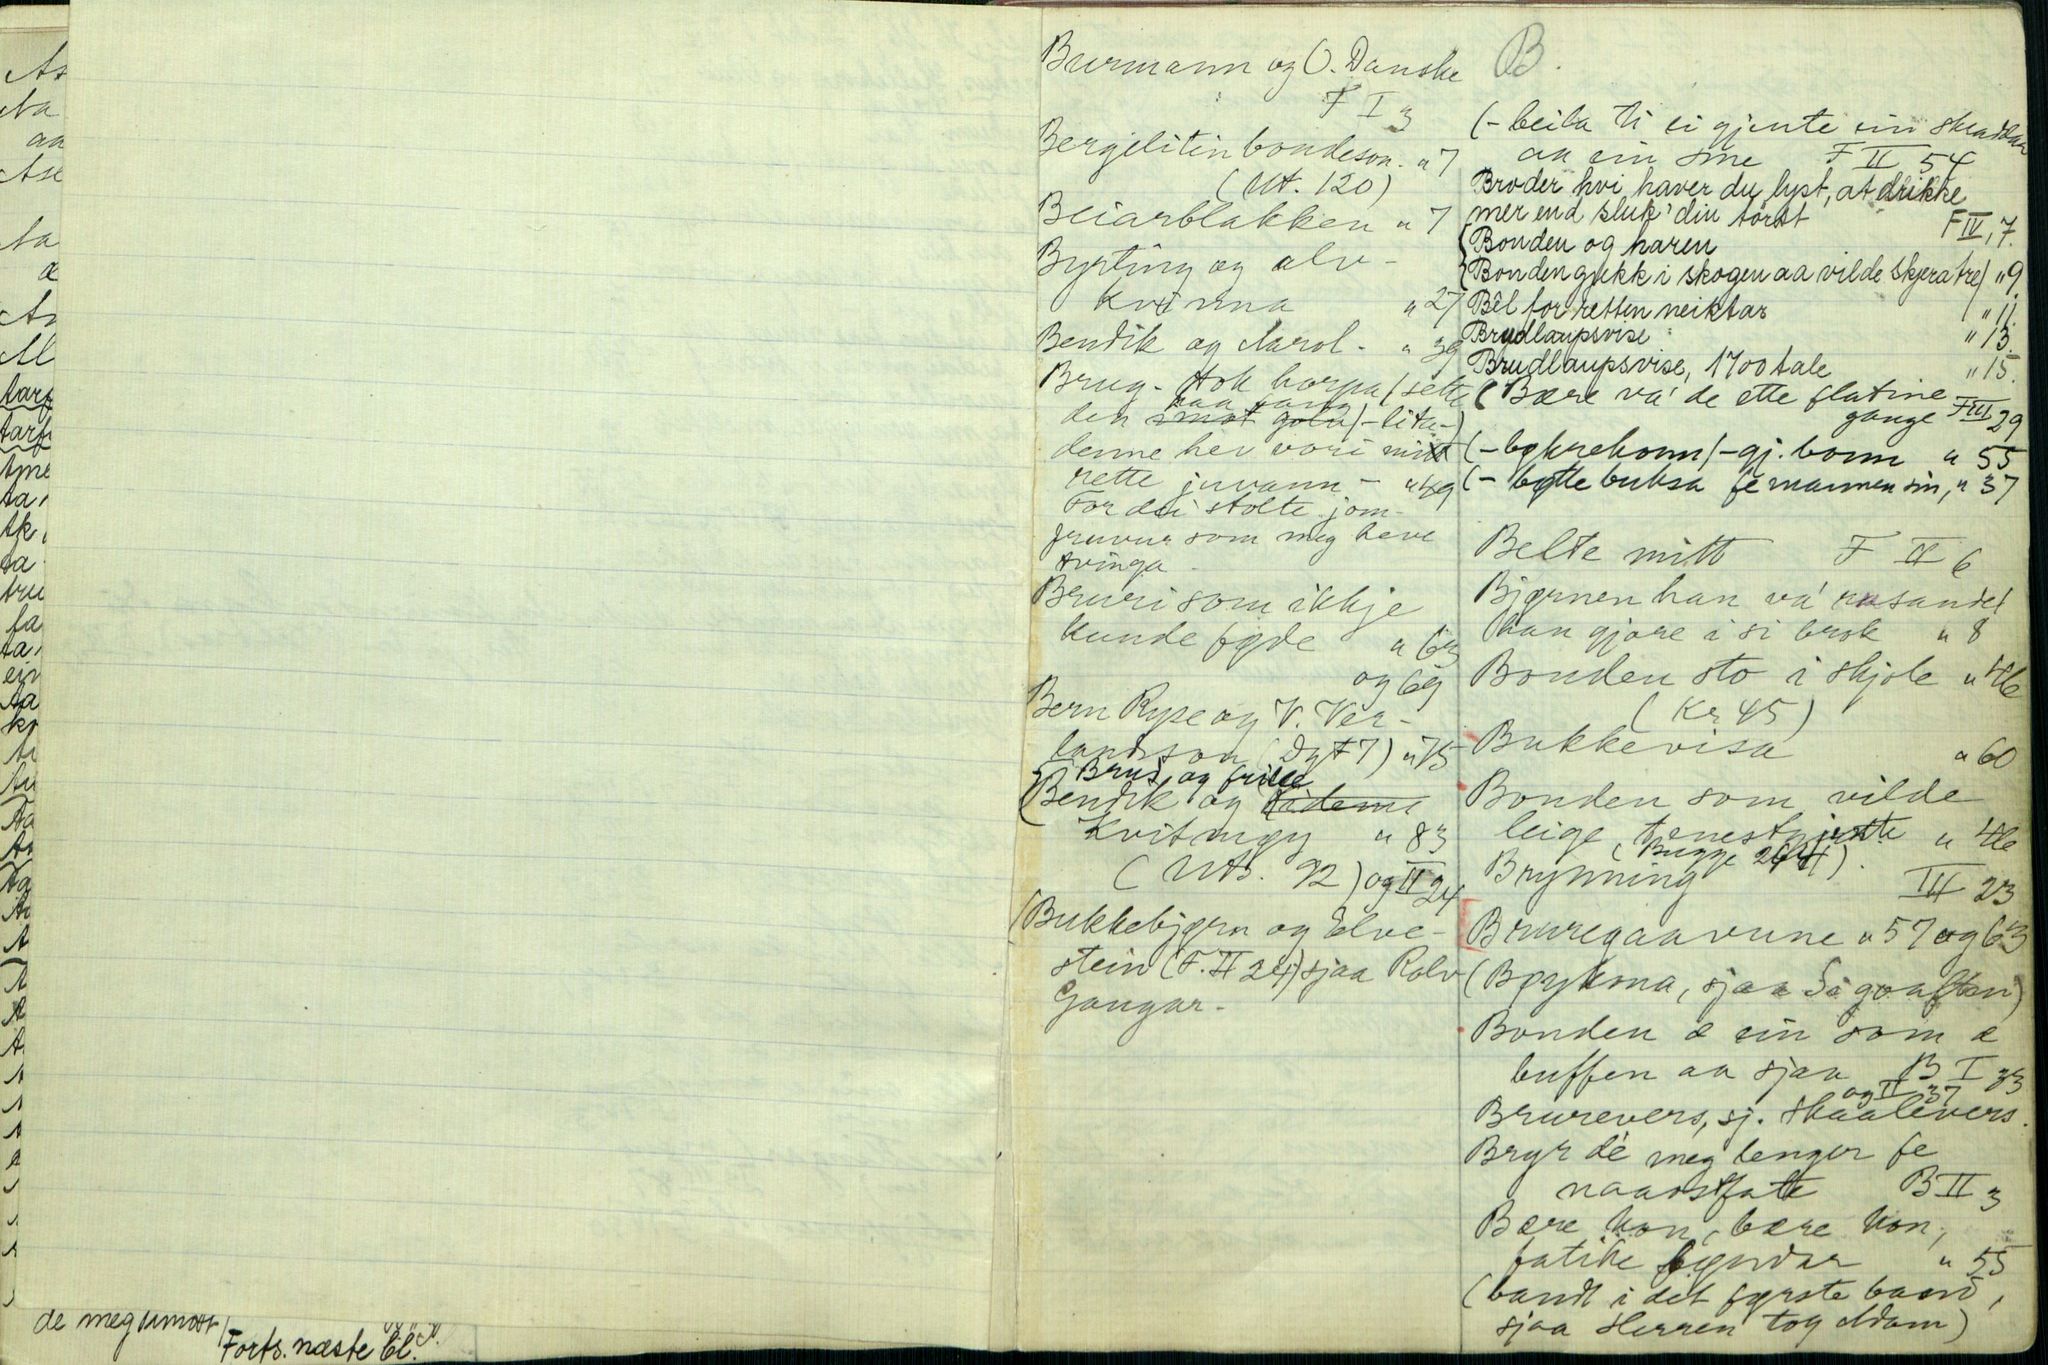 de meg imott
Forts. næste bl.
Burmann og O. Danske
F I 3
Bergjelitin bondeson. " 7
(Ut. 120)
Beiarblakken " 7
Byrting og alv-
kvinna " 27
Bendik og Aarol- " 39
Brug- Hok harpa / sette
paa fang
den imot golv /-lita-)
denne hev vori mitt
rette juvann - " 49
For dei stolte jom-
fruvur som meg heve
tvinga -
Bruri som ikkje
kunde føde " 63
og 69
Bern Ryse og V. Ver-
landsson (DgF 7) " 75
Brus og frille
Bendik og
Kvitmøy " 83
(Uts. 92) og II 24
(Bukkebjørn og Elve-
stein (F. II 24) sjaa Rolv
Gangar -
B.
(- beila ti ei gjente ein skraddar
aa ein sme F II 54
Broder hvi haver du lyst, at drikke
mer end sluk' din törst F IV, 7.
Bonden og haren
Bonden gjekk i skogen aa vilde skjera tre) " 9.
Bêl for retten neiktar " 11.
Brudlaupsvise " 13.
Brudlaupsvise, 1700 tale " 15.
(Bære va' de ette flatine
gange F III 29
(- bokrekonn /- gj. bonn " 55
(- bøtte buksa fe mannen sin, " 37
Belte mitt F II 6
Bjørnen han va' rasandet
han gjore i si brok " 8
Bonden sto i skjole " 46
(Kr 45)
Bukkevisa " 60
Bonden som vilde
leige tenestgjente " 46
(Bugge 264)
Brynning III 23
Bruregaavune " 57 og 63
(Børykona, sjaa )
Bonden æ ein som æ
buffen aa sjaa B I 33
og II 37
Brurevers, sj. skaalevers.
Bryr dé meg lenger fe
naadsfate B II 3
Bære kon, bære kon,
fatike bøndar " 55
(bandt i det første baand,
sjaa Herren tog Adam)